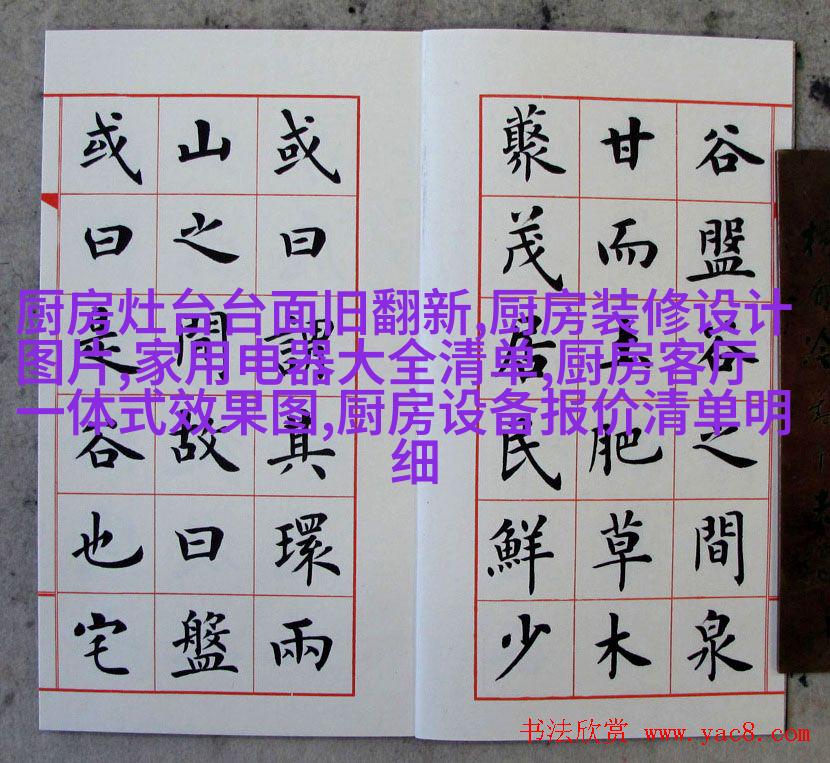 谷盤谷之間泉
甘而土肥草木
藂茂居民鮮少
或曰謂其環兩
山之間故曰盤
或曰是谷也宅
厨房灶台台面旧翻新,厨房装修设计
图片,家用电器大全清单,厨房客厅
一体式效果图,厨房设备报价清单明
细
书法欣赏 www.yac8.com